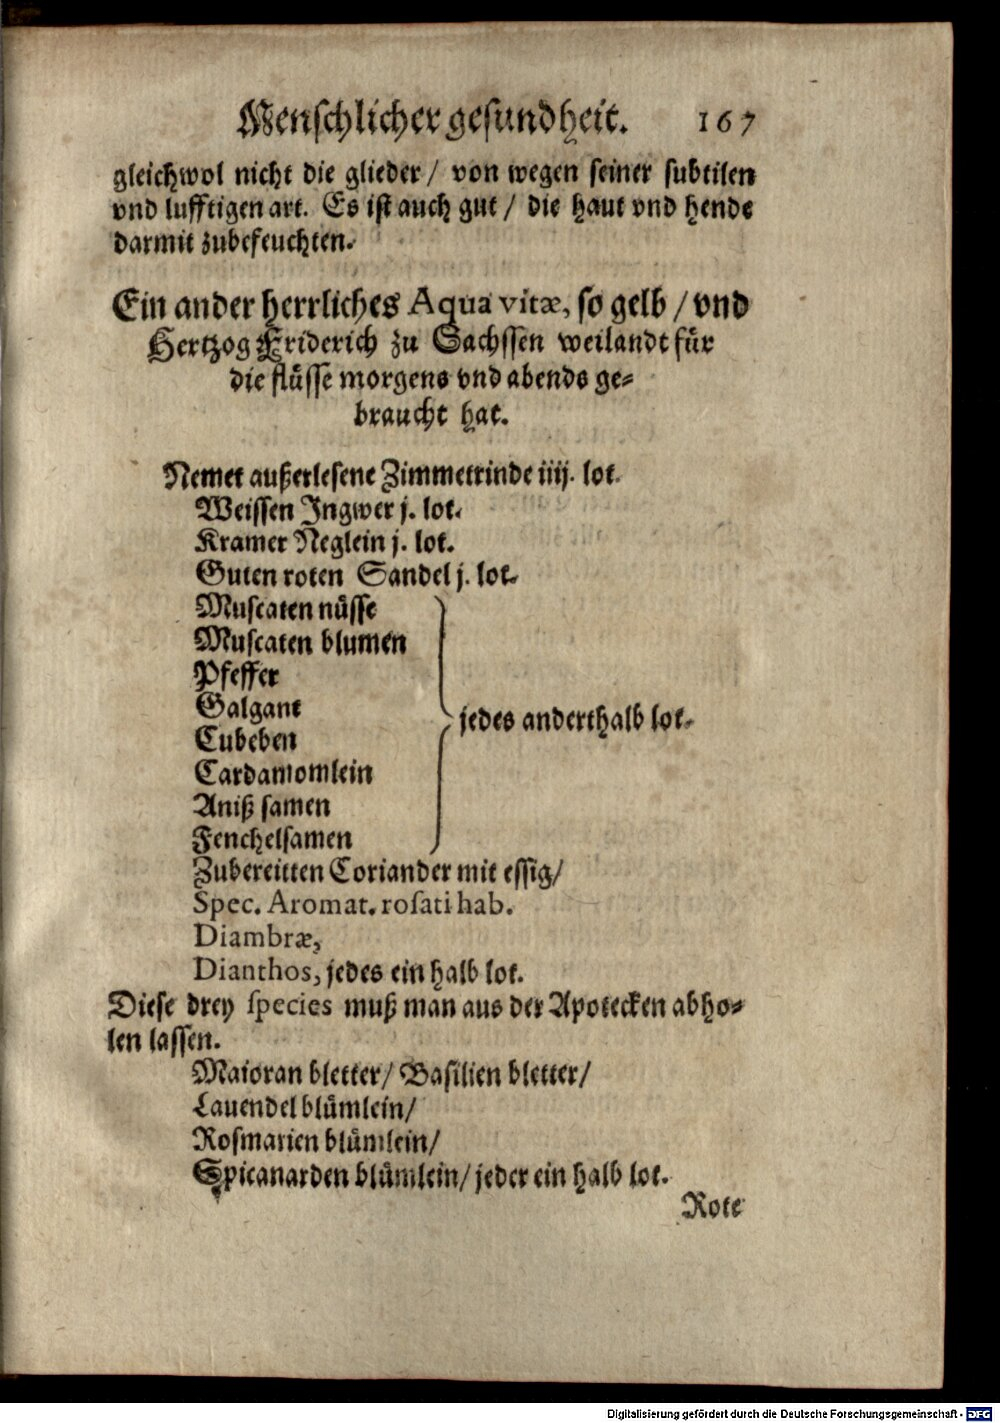 Menschlicher gesundheit. 167
gleichwol nicht die glieder / von wegen seiner subtilen
vnd lufftigen art. Es ist auch gut / die haut vnd hende
darmit zubefeuchten.
Ein ander herrliches Aqua vitæ, so gelb / vnd
Hertzog Friderich zu Sachssen weilandt für
die flüsse morgens vnd abends ge-
braucht hat.
Nemet außerlesene Zimmetrinde iiij. lot.
Weissen Ingwer j. lot.
Kramer Neglein j. lot.
Guten roten Sandel j. lot.
Muscaten nüsse
Muscaten blumen
Pfeffer
Galgant
jedes anderthalb lot.
Cubeben
Cardamomlein
Aniß samen
Fenchelsamen
Zubereitten Coriander mit essig/
Spec. Aromat. rosati hab.
Diambræ,
Dianthos, jedes ein halb lot.
Diese drey species muß man aus der Apotecken abho-
len lassen.
Maioran bletter/ Basilien bletter/
Lauendel blümlein/
Rosmarien blümlein/
Spicanarden blümlein/ jeder ein halb lot.
Rote
Digitalisierung gefördert durch die Deutsche Forschungsgemeinschaft - DFG